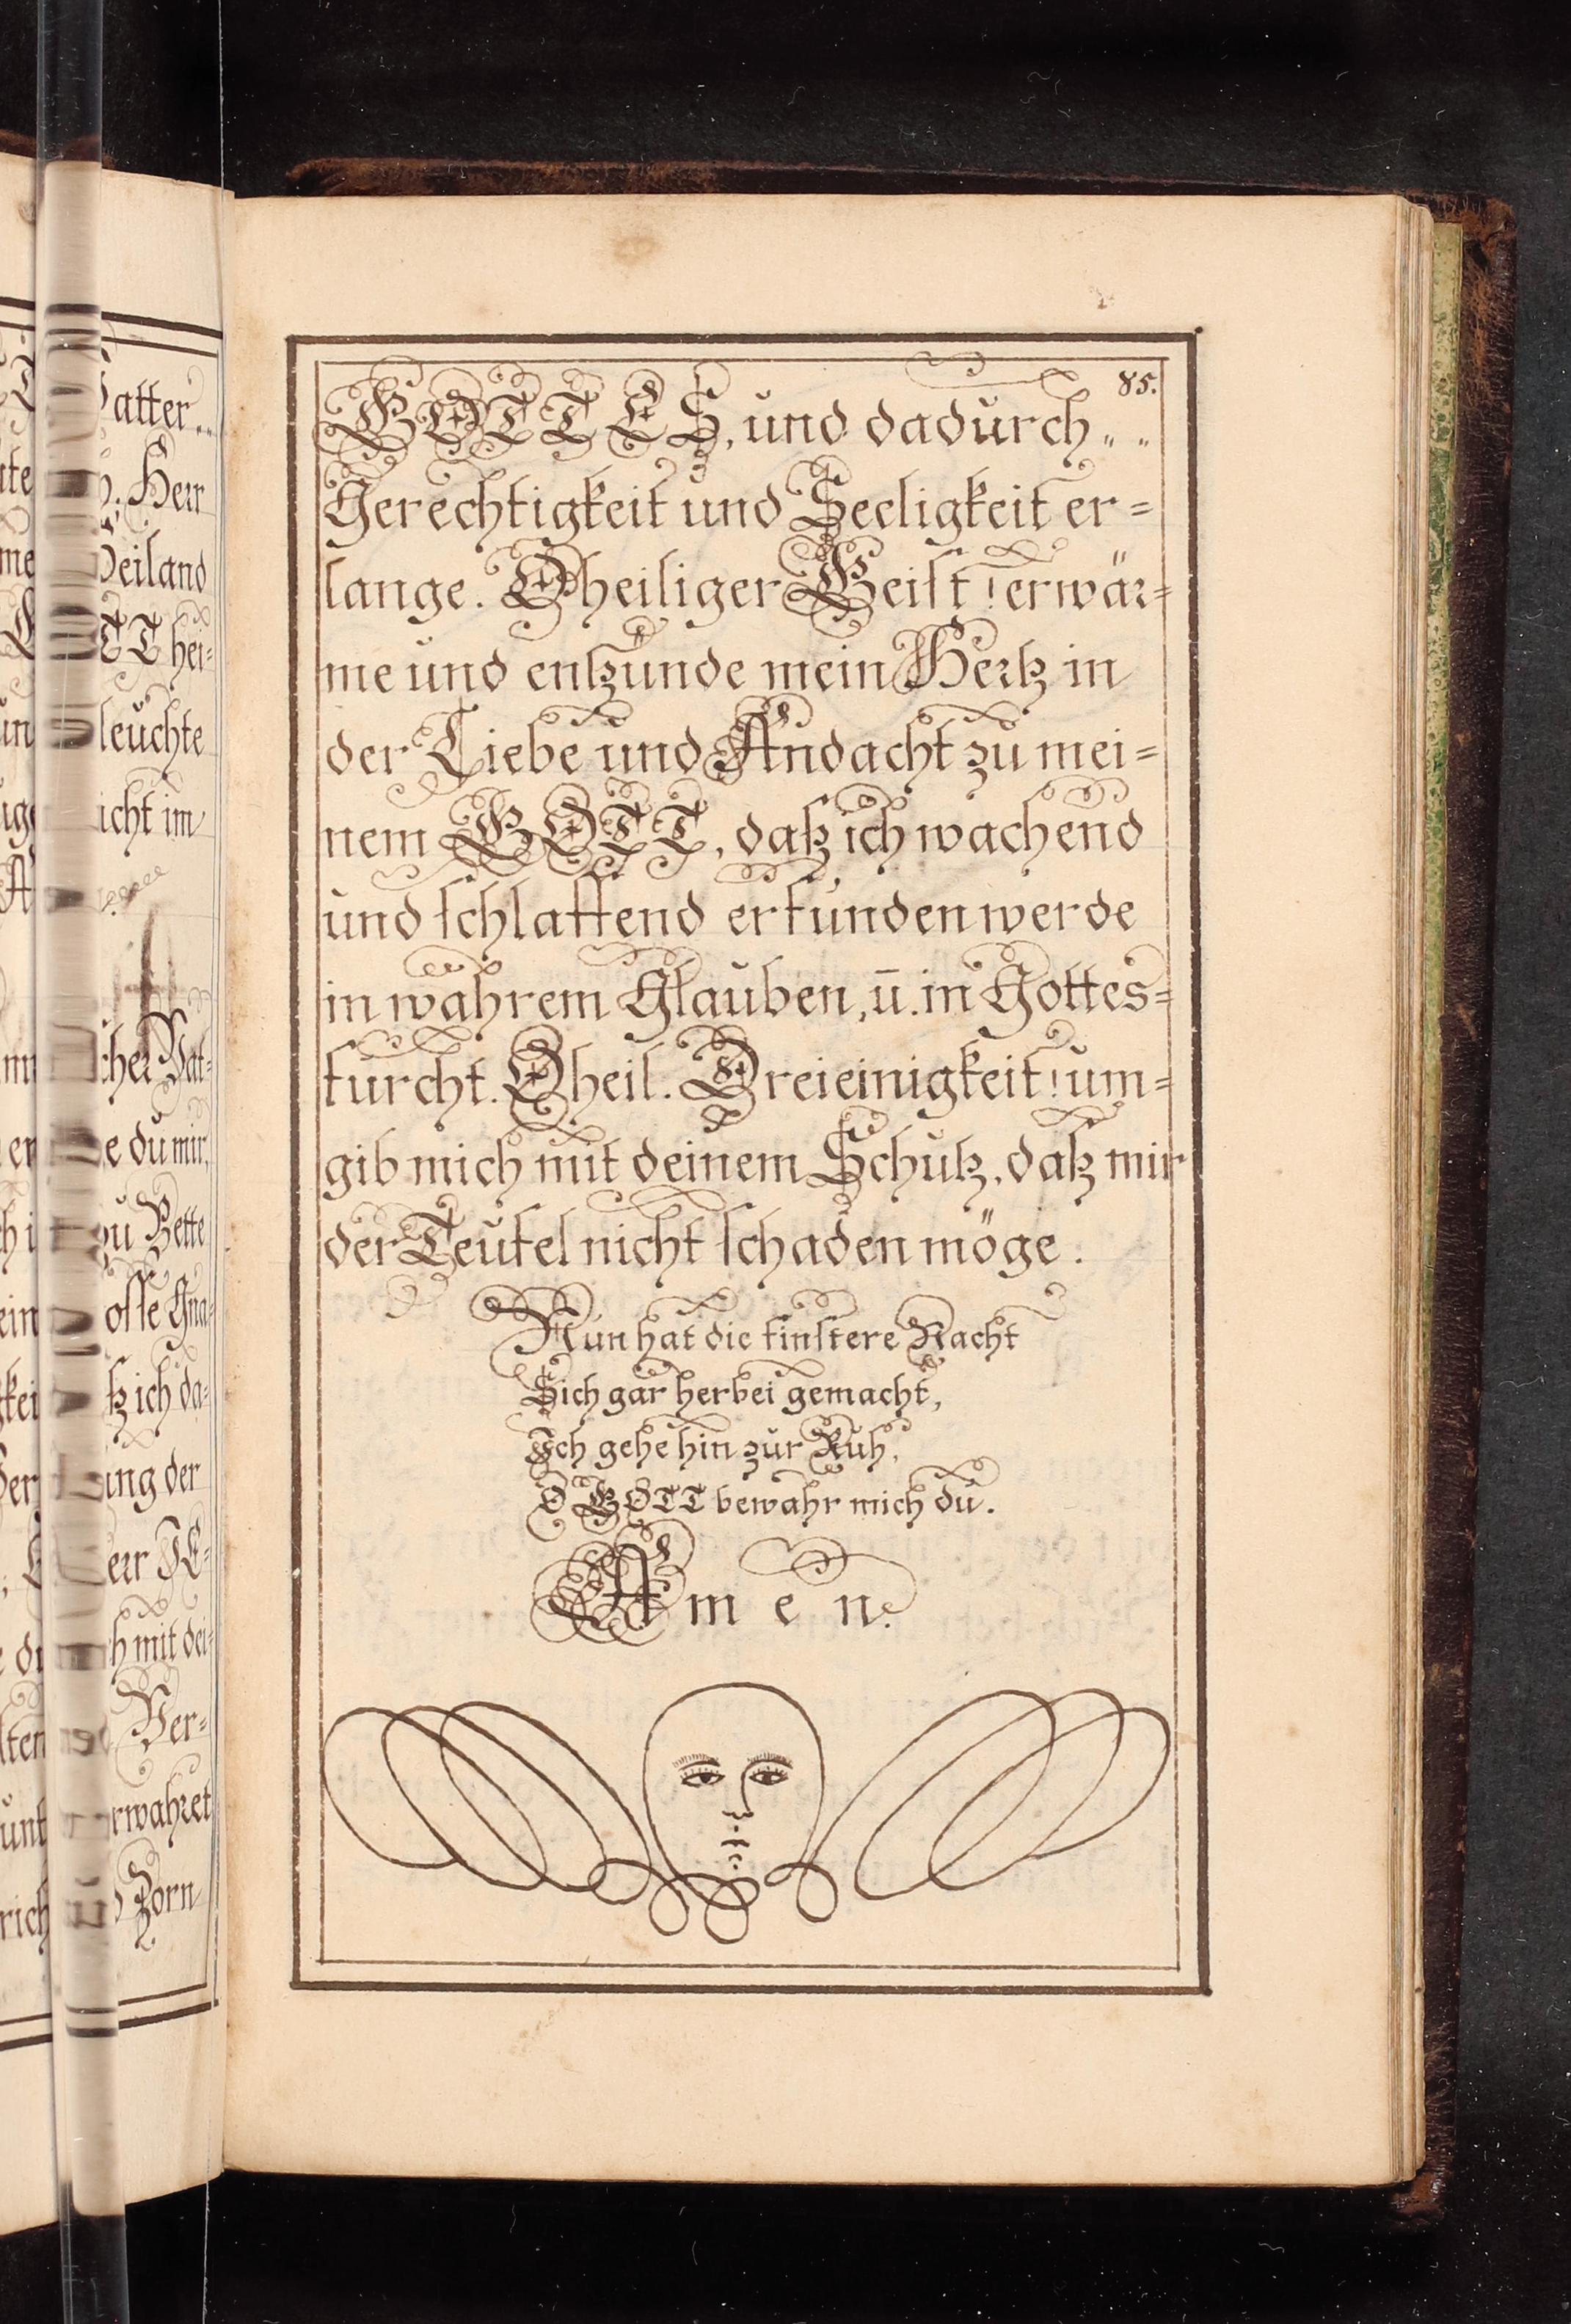 85.
GOTTES, und dadurch„ „
Gerechtigkeit und Seeligkeit er=
lange. O heiliger Geist! erwär=
me und entzünde mein Hertz in
der Liebe und Andacht zu mei=
nem GOTT, daß ich wachend
und schlaffend erfunden werde
in wahrem Glauben, ū. in Gottes=
furcht. O heil. Dreieinigkeit! um=
gib mich mit deinem Schutz, daß mir
der Teufel nicht schaden möge.
Nun hat die finstere Nacht
Sich gar herbei gemacht,
Ich gehe hin zur Ruh,
O GOTT bewahr mich du.
Amen.
atter„
Herr
Heiland
TT hei=
leuchte
icht im
cher Vat=
e du mir,
zu Bette
osse Gna=
ß ich da=
ung der
err JE=
h mit dei=
Ver=
rwahret
Zorn